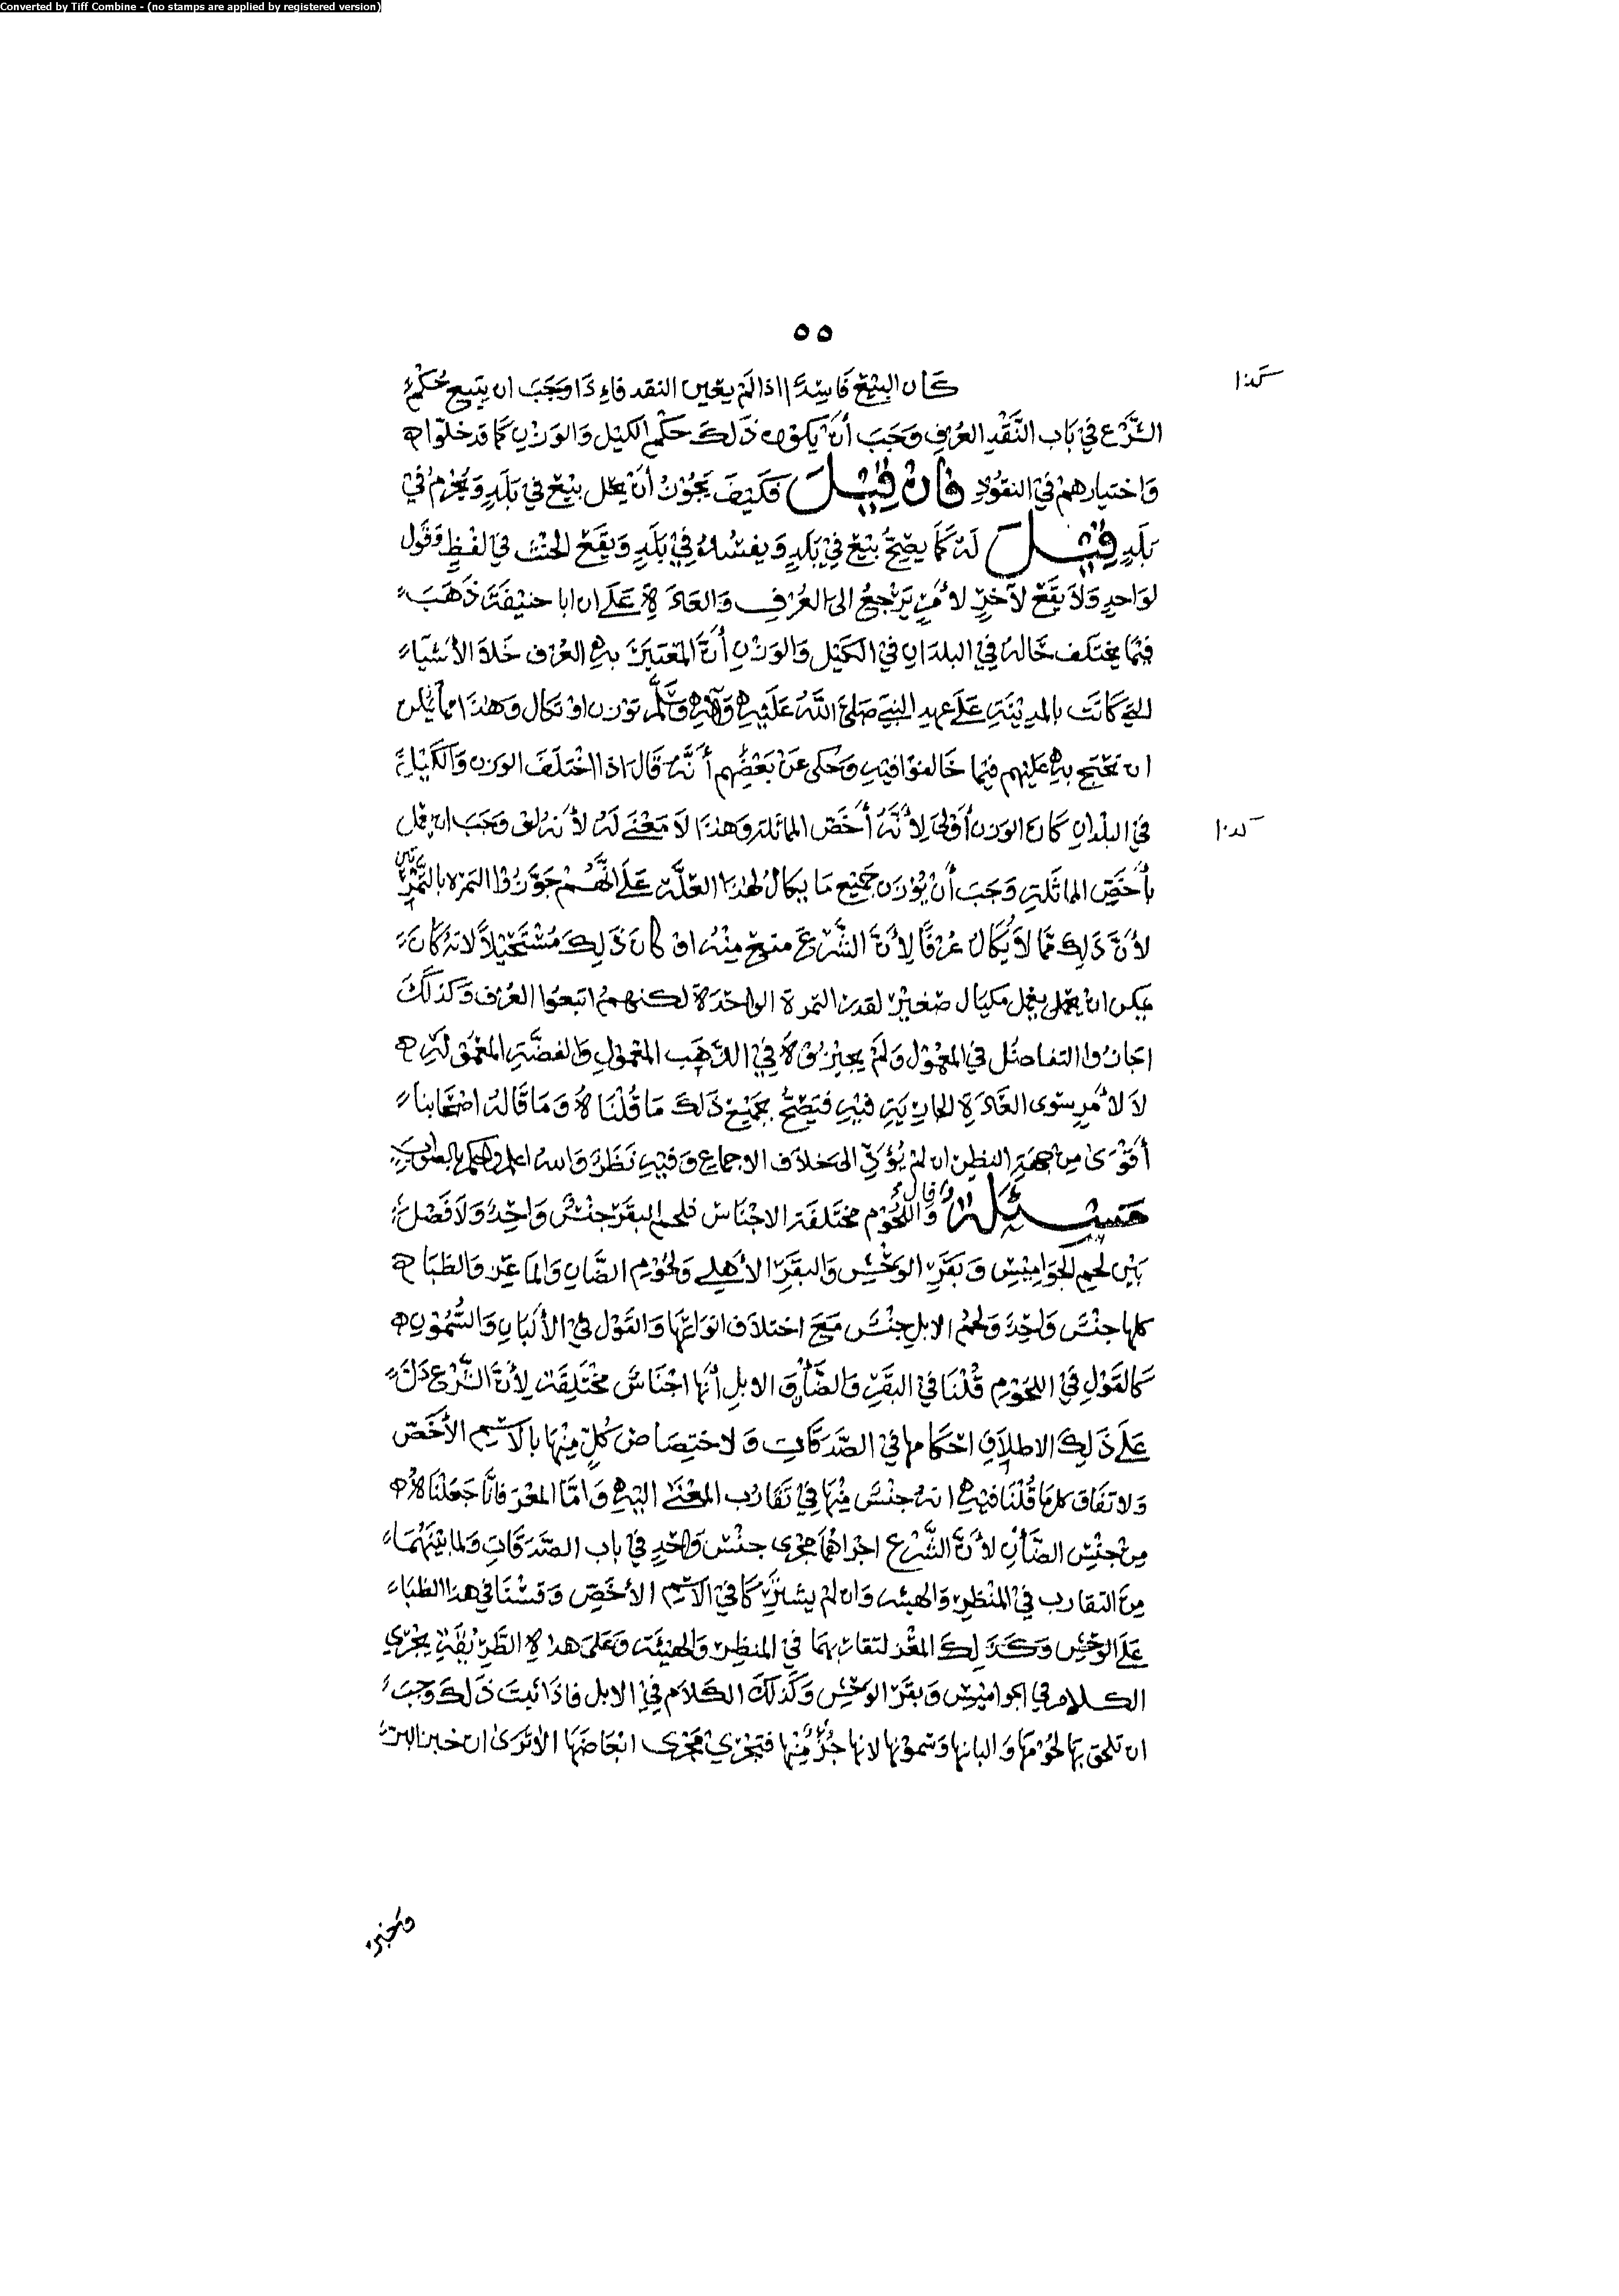 Converted by Tiff Combine - (no stamps are applied by registered version)
٥٥
كذا
كَان البَيْع فَاسِدًا اذا لَم يعَين النقد فاءِذَا وجَبَ ان يتبع حُكْمُ
الشَّرْع في بَاب النَّقْدِ العُرف وَجَبَ أنْ يَكون ذَلكَ حكم الكَيْل وَالوَزْنِ كمَا قد خلوا
وَاختيارهمْ في النقوُدِ فان قيْلَ فكَيْفَ يَجُوْزُ أنْ يحل بيْع في بَلَدٍ وَيَحْرُم في
بَلَدٍ قيْلَ لَهُ كمَا يصِحُّ بيْع في بَلدٍ وَيفسُدُ في بَلَدٍ وَيقَعُ الحنث في لفظٍ وَقَول
لوَاحدٍ وَلاَ يَقَعُ لآخرٍ لأمْرٍ يَرْجعُ الى العُرْفِ وَالعَادَةِ عَلَى ان ابا حنيْفَةَ ذَهَبَ
فيْمَا يختَلف حَالهُ في البلدَانِ في الكَيْل وَالوَزْنِ أنَّ المعْتبَرَ بهِ العُرْف خَلاَ الأشيَآء
التي كَانَت بالمدِيْنَةِ عَلَى عهد النبي صَلى اللهُ عَلَيْهِ وَآلِهِ وَسَلَّم توزن او تكال وَهذا مما يمكن
ان يحْتج به عليهم فيْمَا خَالفوْا فيْهِ وَحُكي عَنْ بَعْضِهم أنَّهُ قَالَ اذا اخْتَلَفَ الوزن وَالكَيْلُ
كذا
في البُلْدانِ كَانَ الوزن أوْلى لأنَّهُ أخَصُّ المماثلة وَهذا لاَ مَعْنى لَهُ لأنه لو وَجَبَ ان يعمل
بأخَصِّ المماثَلةِ وَجَبَ أنْ يُوْزَن جَميْع مَا يكَالُ لهذا العلَّة عَلَى أنَّهُم جَوَّزُوْا التمره بالتَّمْرَتيْن
لأنَّ ذَلِكَ ممَّا لاَ يُكَالُ عُرْفًا لأنَّ الشَّرْعَ منَع منْهُ اوْ كان ذَلكَ مُسْتَحيْلاً لانهُ كَانَ
يمكن انْ يعْمل مكيَال صَغيْر لقدر التمرة الواحدَة لكنهم اتبعُوا العُرْف وَكَذلكَ
اجَازُوا التفاضل في المعْمُوْل وَلَمْ يجيْزوْهُ في الذَّهَب المعْموْلِ وَالفضَّةِ المعْمُوْلَةِ
لاَ لأمْرٍ سوَى العَادَةِ الجاريَةِ فيْهِ فيَصِحُّ جميْع ذَلكَ مَا قُلْنَاهُ وَمَا قَالهُ اصْحَابنا
أقوَى من جهَةِ النظر ان لمْ يُؤَدِّ الى خلاَف الاجماع وَفيْهِ نَظَرٌ وَالله اعلم وأحكم بالصَّواب
مَسْئَلَةٌ قال وَاللُّحُوْم مختَلفَة الاجْنَاس فلحم البقَر جنْسٌ وَاحِدٌ وَلاَ فَصْلَ
بَيْن لحم الجوَاميْس وَبَقَر الوَحْش وَالبقَر الأهلي وَلحُوْم الضَّان وَالماعِز وَالظبَاء
كلها جنْسٌ وَاحدٌ وَلحمُ الابل جنْس مَعَ اختلاَف انوَاعهَا وَالقَوْل في الألبَان وَالسُّمُوْن
كالقَوْلِ في اللحُوْم قُلْنَا في البَقَر وَالضَّأن وَالابلِ أنهَا اجْنَاسٌ مختَلفَة لأنَّ الشَّرْع دَلَّ
عَلَى ذَلكَ الاطلاَق احْكَامهَا في الصَّدقَات وَلاختصَاص كُلٍّ منْهَا بالاسْم الأخَصّ
وَلاتفَاق كل مَا قُلْنَا فيْهِ انهُ جنْسٌ منْهَا في تقَارُب المعْنَى اليْهِ وَامَّا المعْز فانَّا جَعَلْنَاهُ
من جنْس الضَّأن لأنَّ الشَّرْع اجرَاهُمَا مجْرى جنْس وَاحدٍ في باب الصَّدَقَاتِ وَلما بَيْنَهُمَا
مِنَ التقارب في المنْظر وَالهيئه وَان لم يشتركَا في الاسْم الأخَصِّ وَقسْنَا في هذا الظبَاء
عَلَى الوَحْش وَكَذَلكَ المعْز لتقاربهمَا في المنظر وَالهيْئَة وَعَلَى هذهِ الطَّريْقَةِ يجْرى
الكلام في الجوَاميْس وَبقَر الوَحْش وَكَذلكَ الكَلاَم في الابل فاذَا ثبَتَ ذَلكَ وَجَبَ
ان تلحق بهَا لحُوْمهَا وَالبانها وَسموْنها لانها جُزْءٌ منْها فتجْري مَجْرى ابْعَاضهَا الاَ تَرَى ان خبز البر
وَخبز